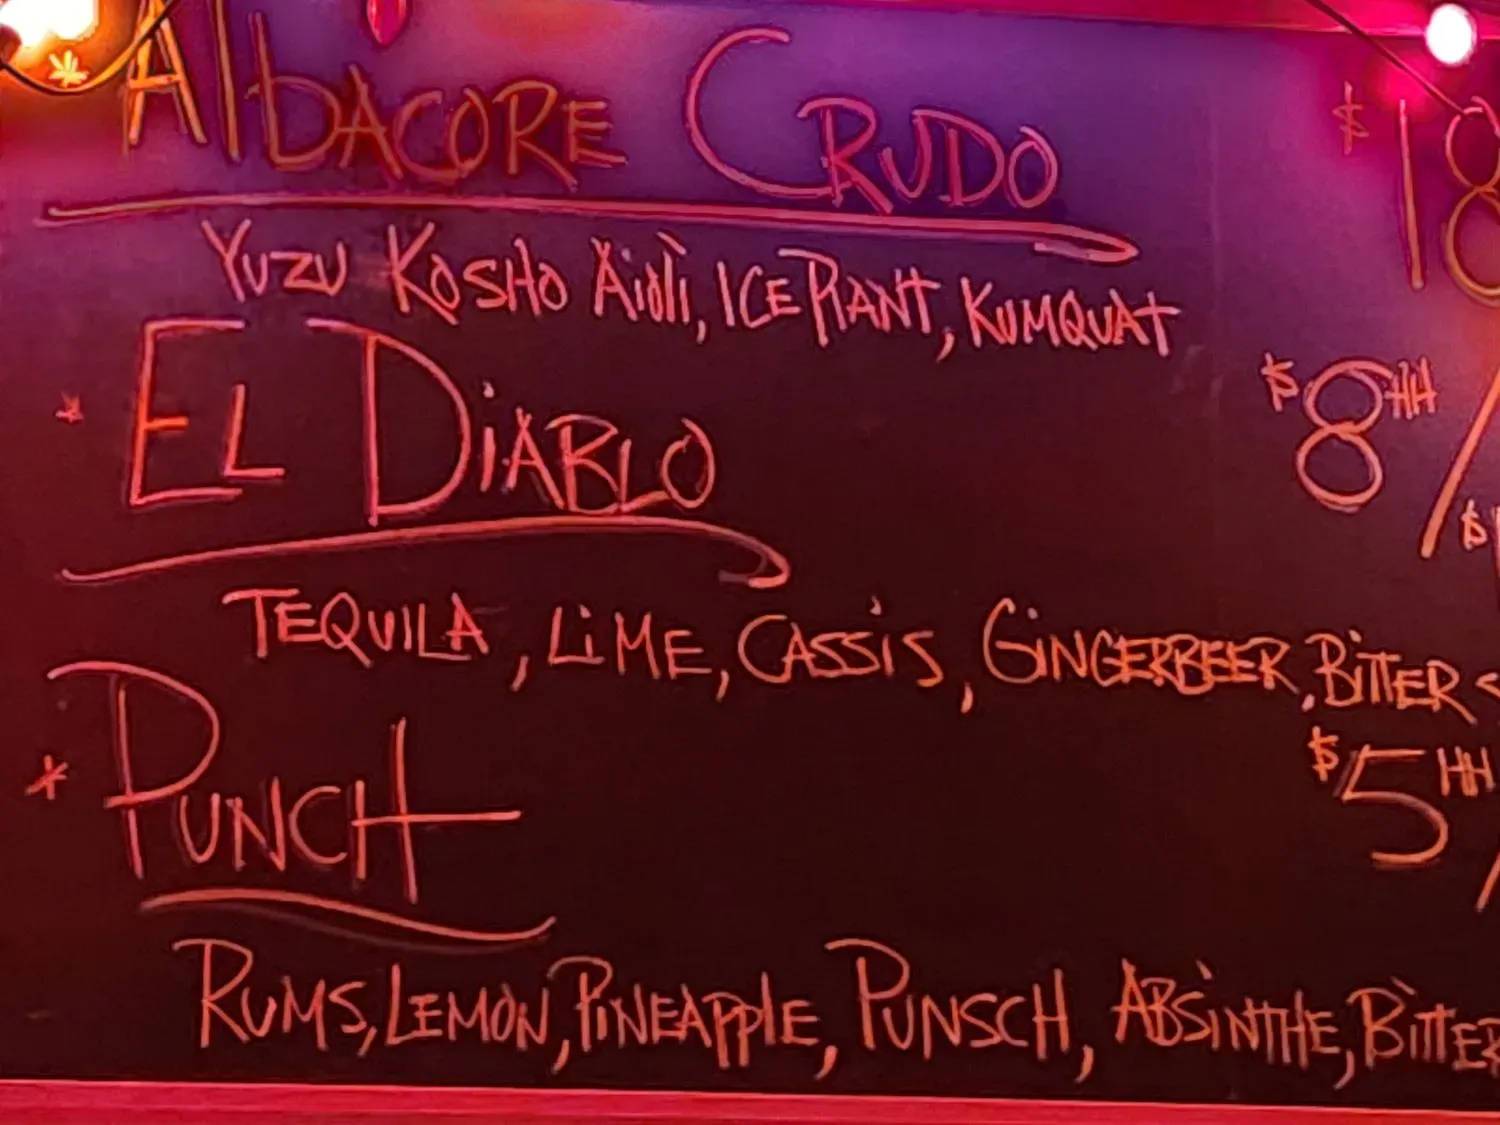 * Albacore Crudo $18
Yuzu Kosho Aioli, Ice Plant, Kumquat
* El Diablo $8HH/$
Tequila, Lime, Cassis, Gingerbeer, Bitters
* Punch $5HH/
Rums, Lemon, Pineapple, Punsch, Absinthe, Bitters